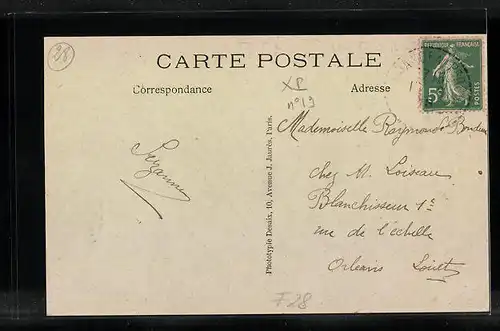 28
CARTE POSTALE
Correspondance
Adresse
XP
n°19
REPUBLIQUE FRANÇAISE
5c
POSTES
Mademoiselle Raymonde
Suzanne
chez M. Loiseau
Blanchisseur
rue de l'échelle
Orléans Loiret
Phototypie Desaix, 10, Avenue J. Jaurès, Paris.
F.28